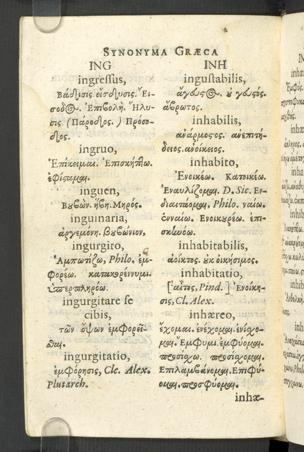 SYNONYMA GRÆCA
ING
ingressus,
Βάδισις εἴσδυσις. Εἴ-
σοδος. Ἐπιβολὴ. Ἤλυ-
σις (Πάροδος.) Πρόσο-
δος.
ingruo,
Ἐπίκειμαι. Ἐπισκήπτω.
ἐφίσταμαι.
inguen,
Βουβών. ἥβη. Μηρός.
inguinaria,
ἀργεμόνη. βουβώνιον.
ingurgito,
Ἀμποτίζω, Philo. ἐμ-
φορέω.
ὑπερπληρόω.
ingurgitare se
cibis,
τῶν ὄψων ἐμφορεῖ-
σθαι.
ingurgitatio,
ἐμφόρησις, Cle. Alex.
Plutarch.
INH
ingustabilis,
ἄγευστος. ὁ γευστός.
ἄβρωτος.
inhabilis,
ἀνάρμοστος. ἀνεπιτή-
δειος. ἀνοίκειος.
inhabito,
Ἐνοικέω. Κατοικέω.
Ἐναυλίζομαι. D. Sic. Ἐν-
διαιτάομαι, Philo. ναίω.
ἐνναίω. Ἐνοικουρέω. ἐπι-
σκηνόω.
inhabitabilis,
ἀοίκητος. οὐκ οἰκήσιμος.
inhabitatio,
Pind.] Ἐνοίκη-
σις, Cl. Alex.
inhæreo,
ἔχομαι. ἐνέχομαι. ἐνίσχο-
μαι. Ἐμφυμι. ἐμφύομαι.
προσίσχω. προσίσχομαι.
Ἐπιλαμβάνομαι. Ἐπιφύ-
ομαι. προσφύομαι.
inhæ-